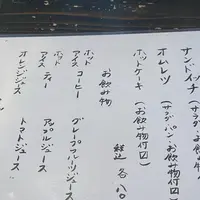 サンドイッチ(サラダ
オムレツ(サラダ、パン、お飲み物付)
ホットケーキ(お飲み物付)
税込 各八〇
お飲み物
ホット コーヒー
アイス
ホット ティー
アイス
グレープフルーツジュース
アップルジュース
オレンジジュース
トマトジュース